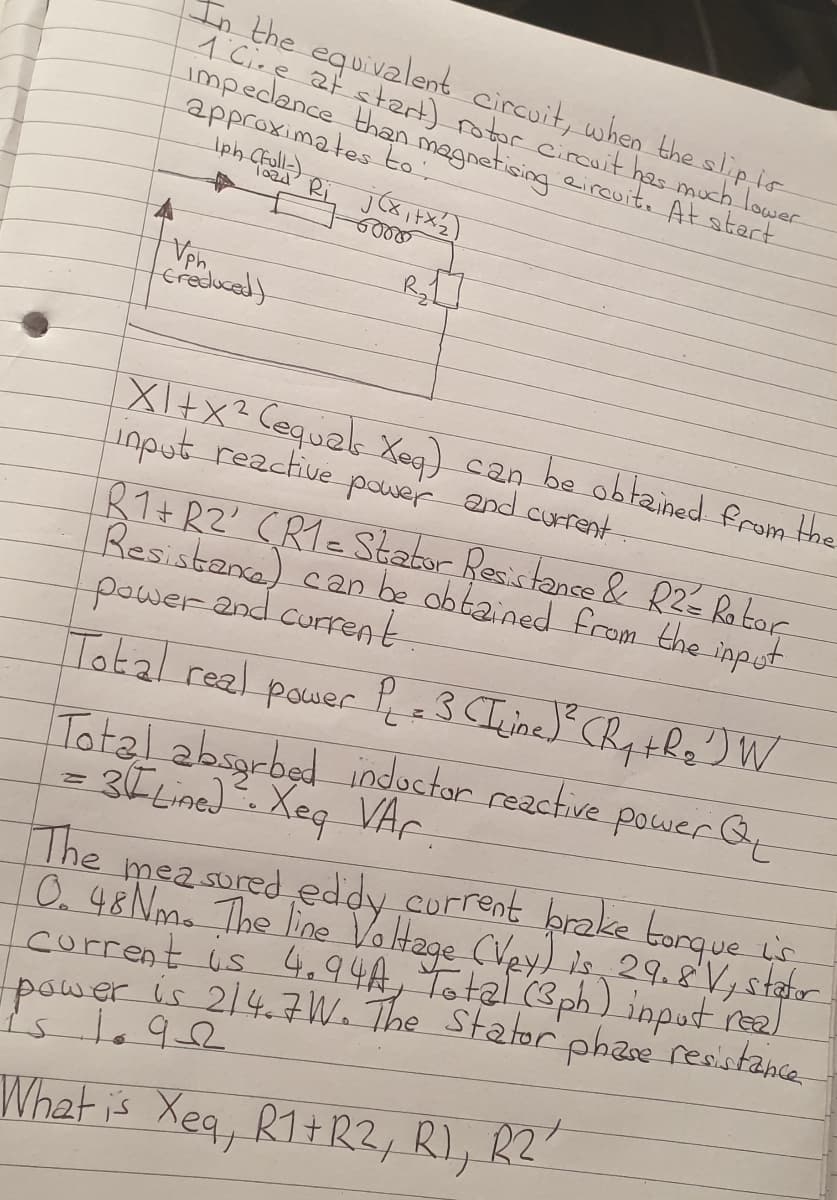 In the equivalent circuit, when the slip is
1 (i.e at start) rotor circuit has much lower
impedance than magnetising circuit. At start
approximates to:
Iph (full-load)
R1
j(X1+X2')
R2'
Vph
(reduced)
X1+X2 (equals Xeq) can be obtained from the
input reactive power and current.
R1+R2' (R1= Stator Resistance & R2'= Rotor
Resistance) can be obtained from the input
power and current.
Total real power PL = 3 (ILine)² (R1+R2') W
Total absorbed inductor reactive power QL
= 3(ILine)². Xeq VAr.
The measured eddy current brake torque is
0.48Nm. The line Voltage (Vry) is 29.8V, stator
current is 4.94A, Total (3ph) input real
power is 214.7W. The Stator phase resistance
is 1.9Ω
What is Xeq, R1+R2, R1, R2'